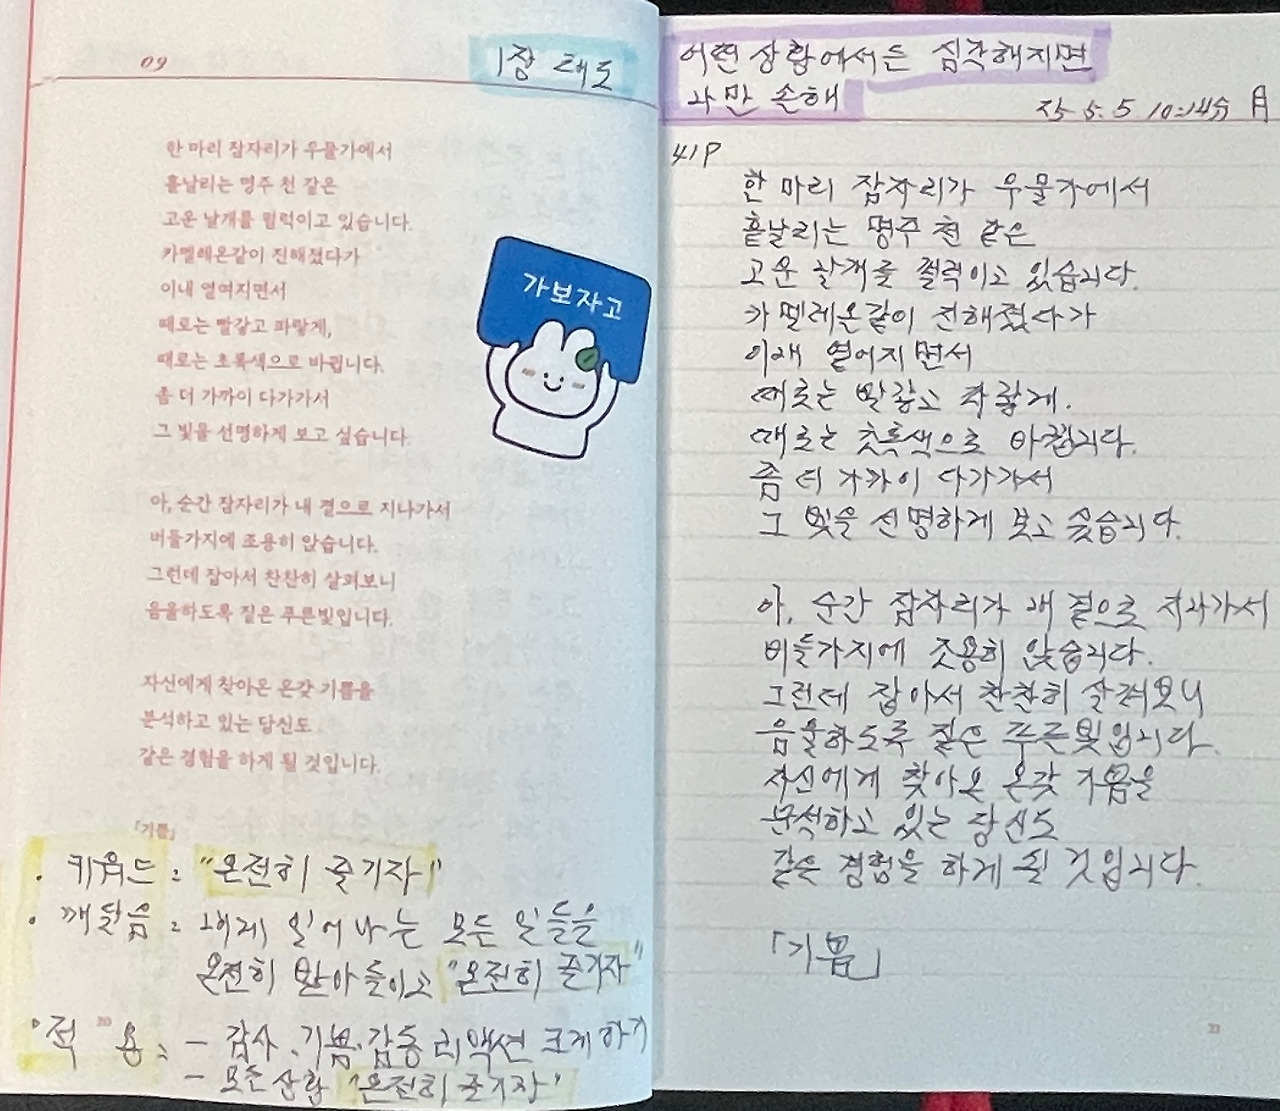 09
1장 태도
한 마리 잠자리가 우물가에서
흩날리는 명주 천 같은
고운 날개를 펄럭이고 있습니다.
카멜레온같이 진해졌다가
이내 옅여지면서
때로는 빨갛고 파랗게,
때로는 초록색으로 바뀝니다.
좀 더 가까이 다가가서
그 빛을 선명하게 보고 싶습니다.
가보자고
아, 순간 잠자리가 내 곁으로 지나가서
버들가지에 조용히 앉습니다.
그런데 잡아서 찬찬히 살펴보니
음울하도록 짙은 푸른빛입니다.
자신에게 찾아온 온갖 기쁨을
분석하고 있는 당신도
같은 경험을 하게 될 것입니다.
「기쁨」
• 키워드 : "온전히 즐기자"
• 깨달음 : 내게 일어나는 모든 일들을
온전히 받아들이고 "온전히 즐기자"
• 적용 : - 감사.기쁨.감동 리액션 크게하기
- 모든상황 "온전히즐기자"
20
어떤상황에서든 심각해지면
나만 손해
25. 5. 5 10:14分 月
41P
한 마리 잠자리가 우물가에서
흩날리는 명주 천 같은
고운 날개를 펄럭이고 있습니다.
카멜레온같이 진해졌다가
이내 옅어지면서
때로는 빨갛고 파랗게.
때로는 초록색으로 바뀝니다.
좀 더 가까이 다가가서
그 빛을 선명하게 보고 싶습니다.
아, 순간 잠자리가 내 곁으로 지나가서
버들가지에 조용히 앉습니다.
그런데 잡아서 찬찬히 살펴보니
음울하도록 짙은 푸른빛입니다.
자신에게 찾아온 온갖 기쁨을
분석하고 있는 당신도
같은 경험을 하게 될 것입니다.
「기쁨」
21